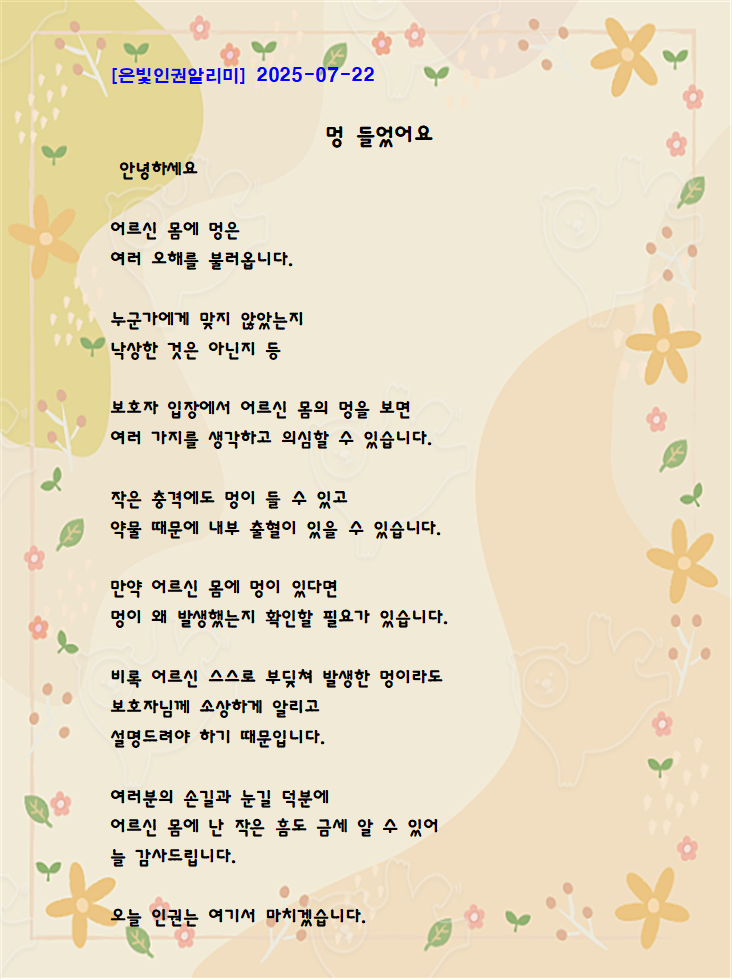 [은빛인권알리미] 2025-07-22
멍 들었어요
안녕하세요
어르신 몸에 멍은
여러 오해를 불러옵니다.
누군가에게 맞지 않았는지
낙상한 것은 아닌지 등
보호자 입장에서 어르신 몸의 멍을 보면
여러 가지를 생각하고 의심할 수 있습니다.
작은 충격에도 멍이 들 수 있고
약물 때문에 내부 출혈이 있을 수 있습니다.
만약 어르신 몸에 멍이 있다면
멍이 왜 발생했는지 확인할 필요가 있습니다.
비록 어르신 스스로 부딪쳐 발생한 멍이라도
보호자님께 소상하게 알리고
설명드려야 하기 때문입니다.
여러분의 손길과 눈길 덕분에
어르신 몸에 난 작은 흠도 금세 알 수 있어
늘 감사드립니다.
오늘 인권는 여기서 마치겠습니다.